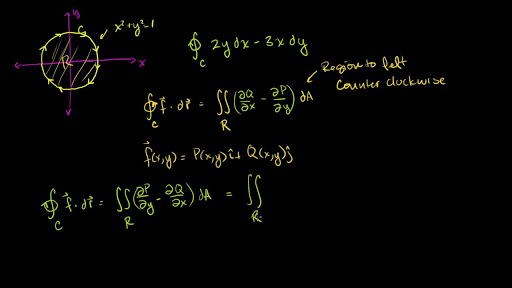 y
C
x² + y² = 1
R
x
∮_C 2y dx − 3x dy
Region to left
counter clockwise
∮_C f⃗ · dr⃗ = ∬_R (∂Q/∂x − ∂P/∂y) dA
f⃗(x,y) = P(x,y) î + Q(x,y) ĵ
∮_C f⃗ · dr⃗ = ∬_R (∂P/∂y − ∂Q/∂x) dA = ∬_R